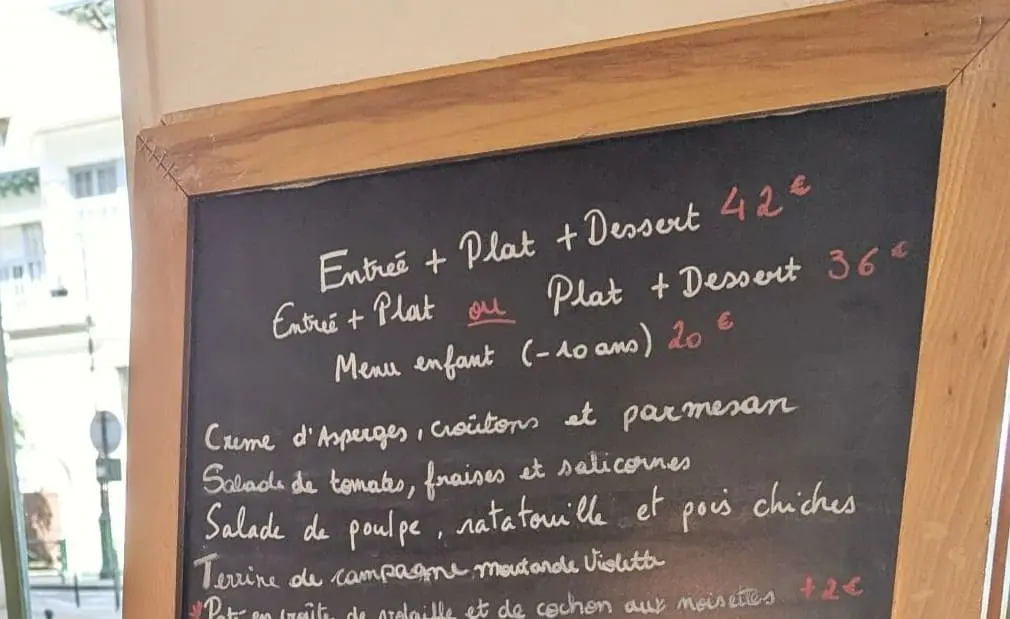 Entreé + Plat + Dessert 42€
Entreé + Plat ou Plat + Dessert 36€
Menu enfant (-10 ans) 20€
Creme d'Asperges, croûtons et parmesan
Salade de tomates, fraises et salicornes
Salade de poulpe, ratatouille et pois chiches
Terrine de campagne moutarde Violette
*Paté en croûte de volaille et de cochon aux noisettes +2€